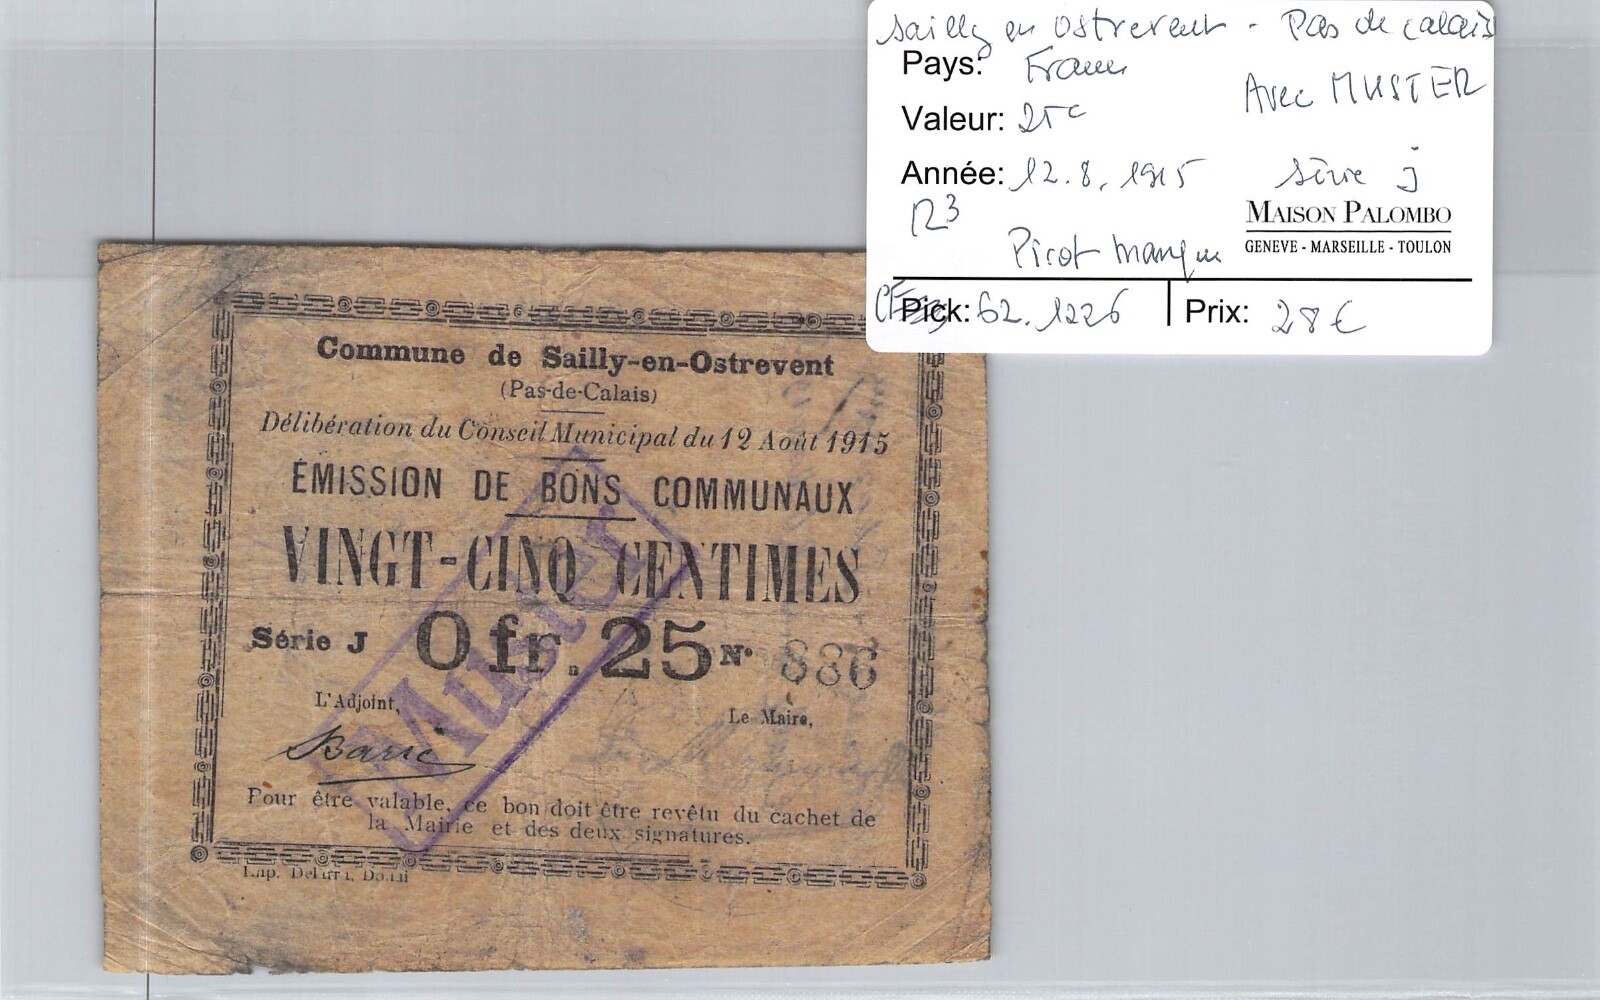 Sailly en Ostrevent - Pas de Calais
Pays: France
Avec MUSTER
Valeur: 25c
Année: 12.8.1915
Série J
R3
MAISON PALOMBO
GENEVE - MARSEILLE - TOULON
Pirot manque
Pick: 62.1226
Prix: 28€
Commune de Sailly-en-Ostrevent
(Pas-de-Calais)
Délibération du Conseil Municipal du 12 Août 1915
ÉMISSION DE BONS COMMUNAUX
VINGT-CINQ CENTIMES
Série J 0 fr. 25 N° 886
Muster
L'Adjoint,
Le Maire,
Pour être valable, ce bon doit être revêtu du cachet de
la Mairie et des deux signatures.
Imp.